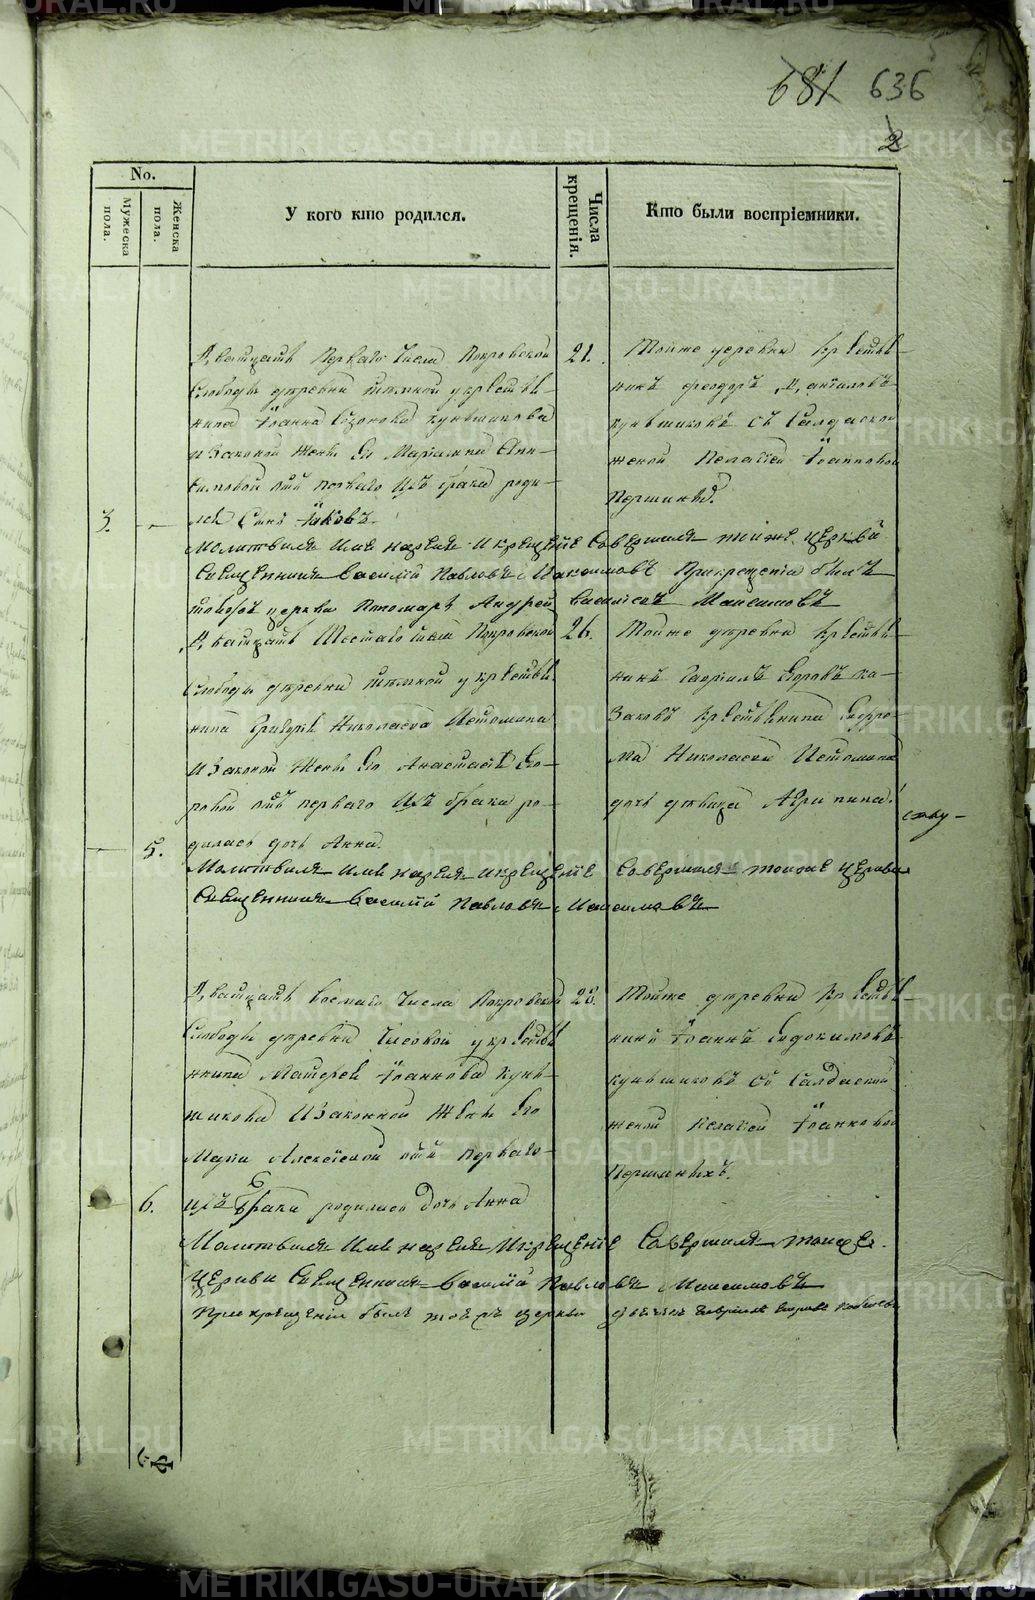 681 636
2
No.
Мужеска пола.
Женска пола.
У кого кто родился.
Числа крещенія.
Кто были воспріемники.
Дватцать перваго числа Покровской
слободы деревни у крестья-
нина Іоанна Созонова Куньщикова
и законной жены его Маріамны Ани-
симовой отъ перваго изъ брака роди-
лся сынъ Іаковъ.
3.
21.
Тойже деревни крестья-
нинъ Феодоръ Даниловъ
Куньщиковъ съ Салдаской
женой Пелагіей Іоанновой
Першиныхъ.
Молитвилъ имя нареклъ и крещеніе совершилъ тойже церкви
священникъ Василій Павловъ Максимовъ При крещеніи былъ
тойже церкви пономарь Андрей Васильевъ Максимовъ
Дватцать шестаго числа Покровской
слободы деревни у крестья-
нина Григорія Николаева Истомина
и законной жены его Анастасіи Его-
ровой отъ перваго изъ брака ро-
дилась дочь Анна.
5.
26.
Тойже деревни крестья-
нинъ Гавріилъ Егоровъ Ка-
заковъ крестьянина
Николаева Истомина
дочь девица Агрипина.
Молитвилъ имя нареклъ и крещеніе совершилъ тойже церкви
священникъ Василій Павловъ Максимовъ
Дватцать восмаго числа Покровской
слободы деревни у крестья-
нина Матфея Іоаннова Кунь-
щикова и законной жены его
Маріи Алексіевой отъ перваго
изъ брака родилась дочь Анна
6.
28.
Тойже деревни крестья-
нинъ Іоаннъ Евдокимовъ
Куньщиковъ съ Салдаской
женой Пелагіей Іоанновой
Першиныхъ.
Молитвилъ имя нареклъ и крещеніе совершилъ тойже
церкви священникъ Василій Павловъ Максимовъ
При крещеніи былъ тоежъ церкви
METRIKI.GASO-URAL.RU